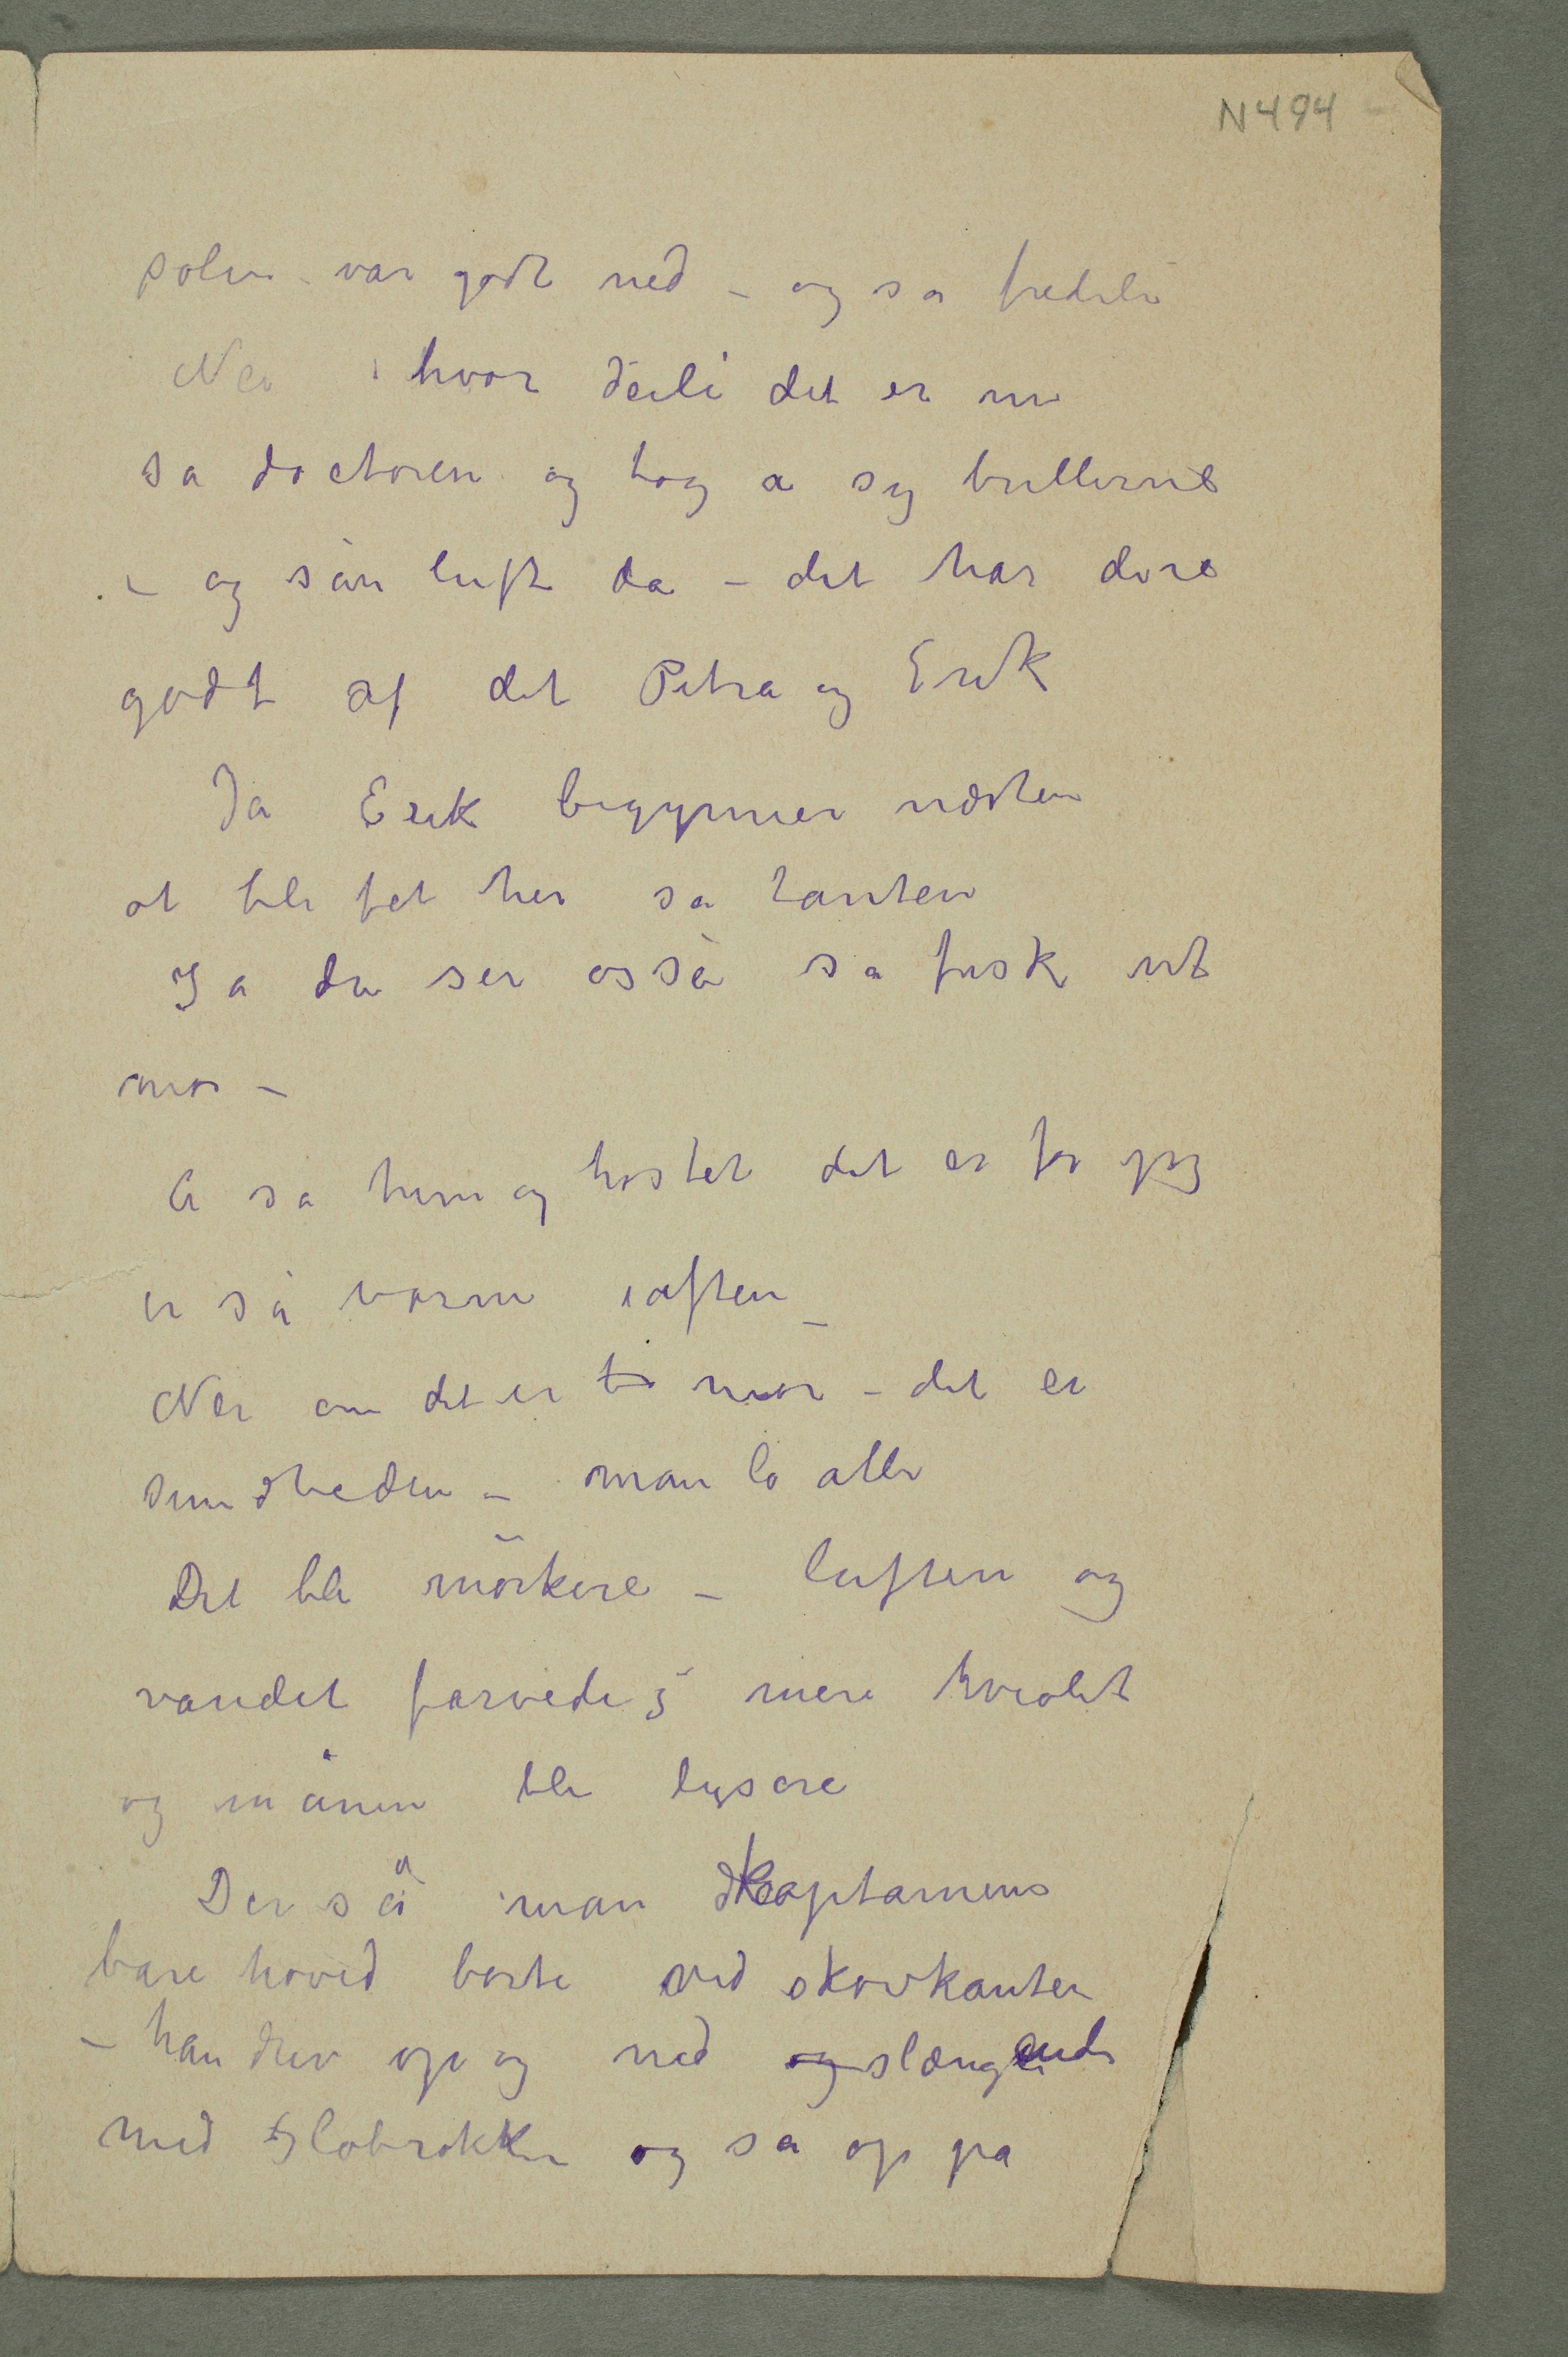 N494
solen var godt ned – og så fredeli
Nei hvor deili det er nu
sa doctoren og tog a sig brillerne
– og sån luft da – det har dere
godt af det Petra og Erik
Ja Erik begynner næsten
at bli fet her sa tanten
Ja du ser også så frisk ut
mor –
Å sa hun og hostet det er for jeg
er så varm iaften –
Nei om det er mor – det er
sundheden – man lo alle
Det ble mörkere – luften og
vandet farvedes mere violet
og månen ble lysere
Der så man kaptainens
bare hoved borte ved skovkanten
– han drev op og ned og slængende
med slobrokken og så op på